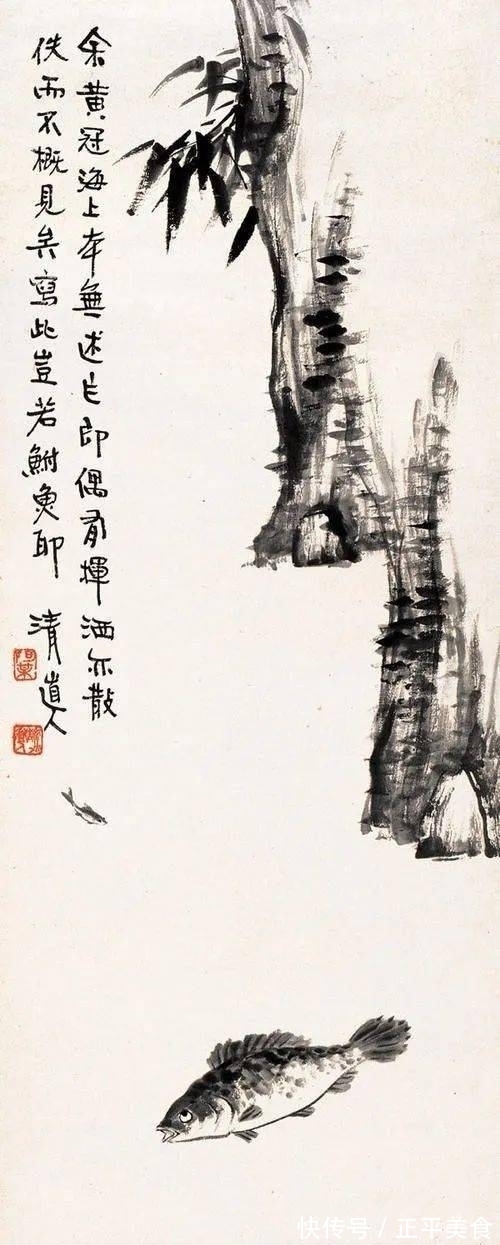 余黄冠海上本無述作即偶有揮洒亦散
佚而不概見矣寫此豈若鮒魚耶
清道人
快传号 / 正平美食